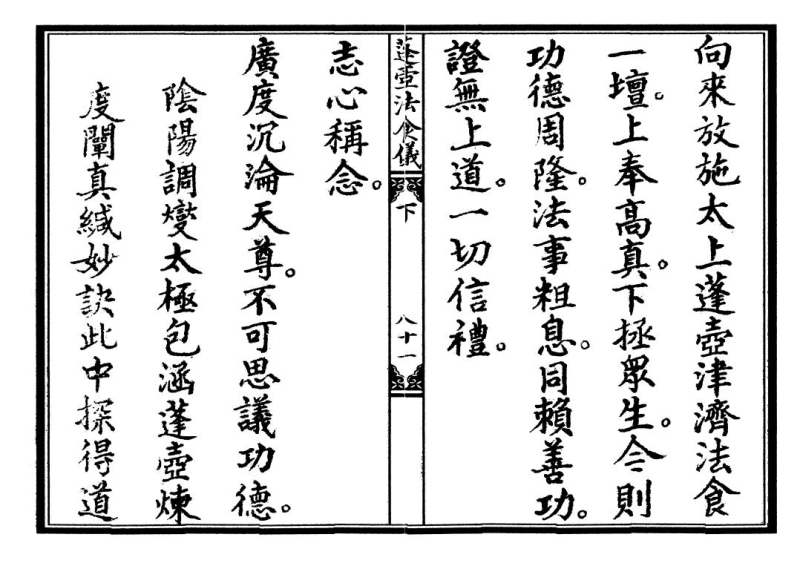 向來放施太上蓬壺津濟法食
一壇。上奉高真。下拯眾生。今則
功德周隆。法事粗息。同賴善功。
證無上道。一切信禮。
蓬壺法食儀 下 八十一
志心稱念。
廣度沉淪天尊。不可思議功德。
陰陽調燮太極包涵蓬壺煉
度闡真緘妙訣此中探得道